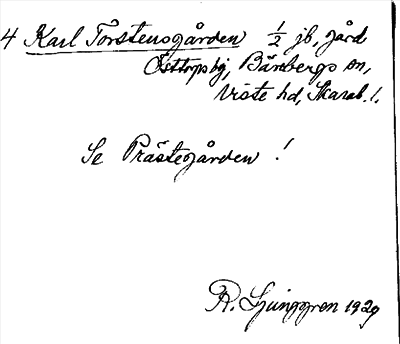 4 Karl Torstensgården 1/2 jb, gård
Östtorps by, Bärebergs sn,
Viste hd, Skarab. l.
Se Prästegården!
R. Ljunggren 1929